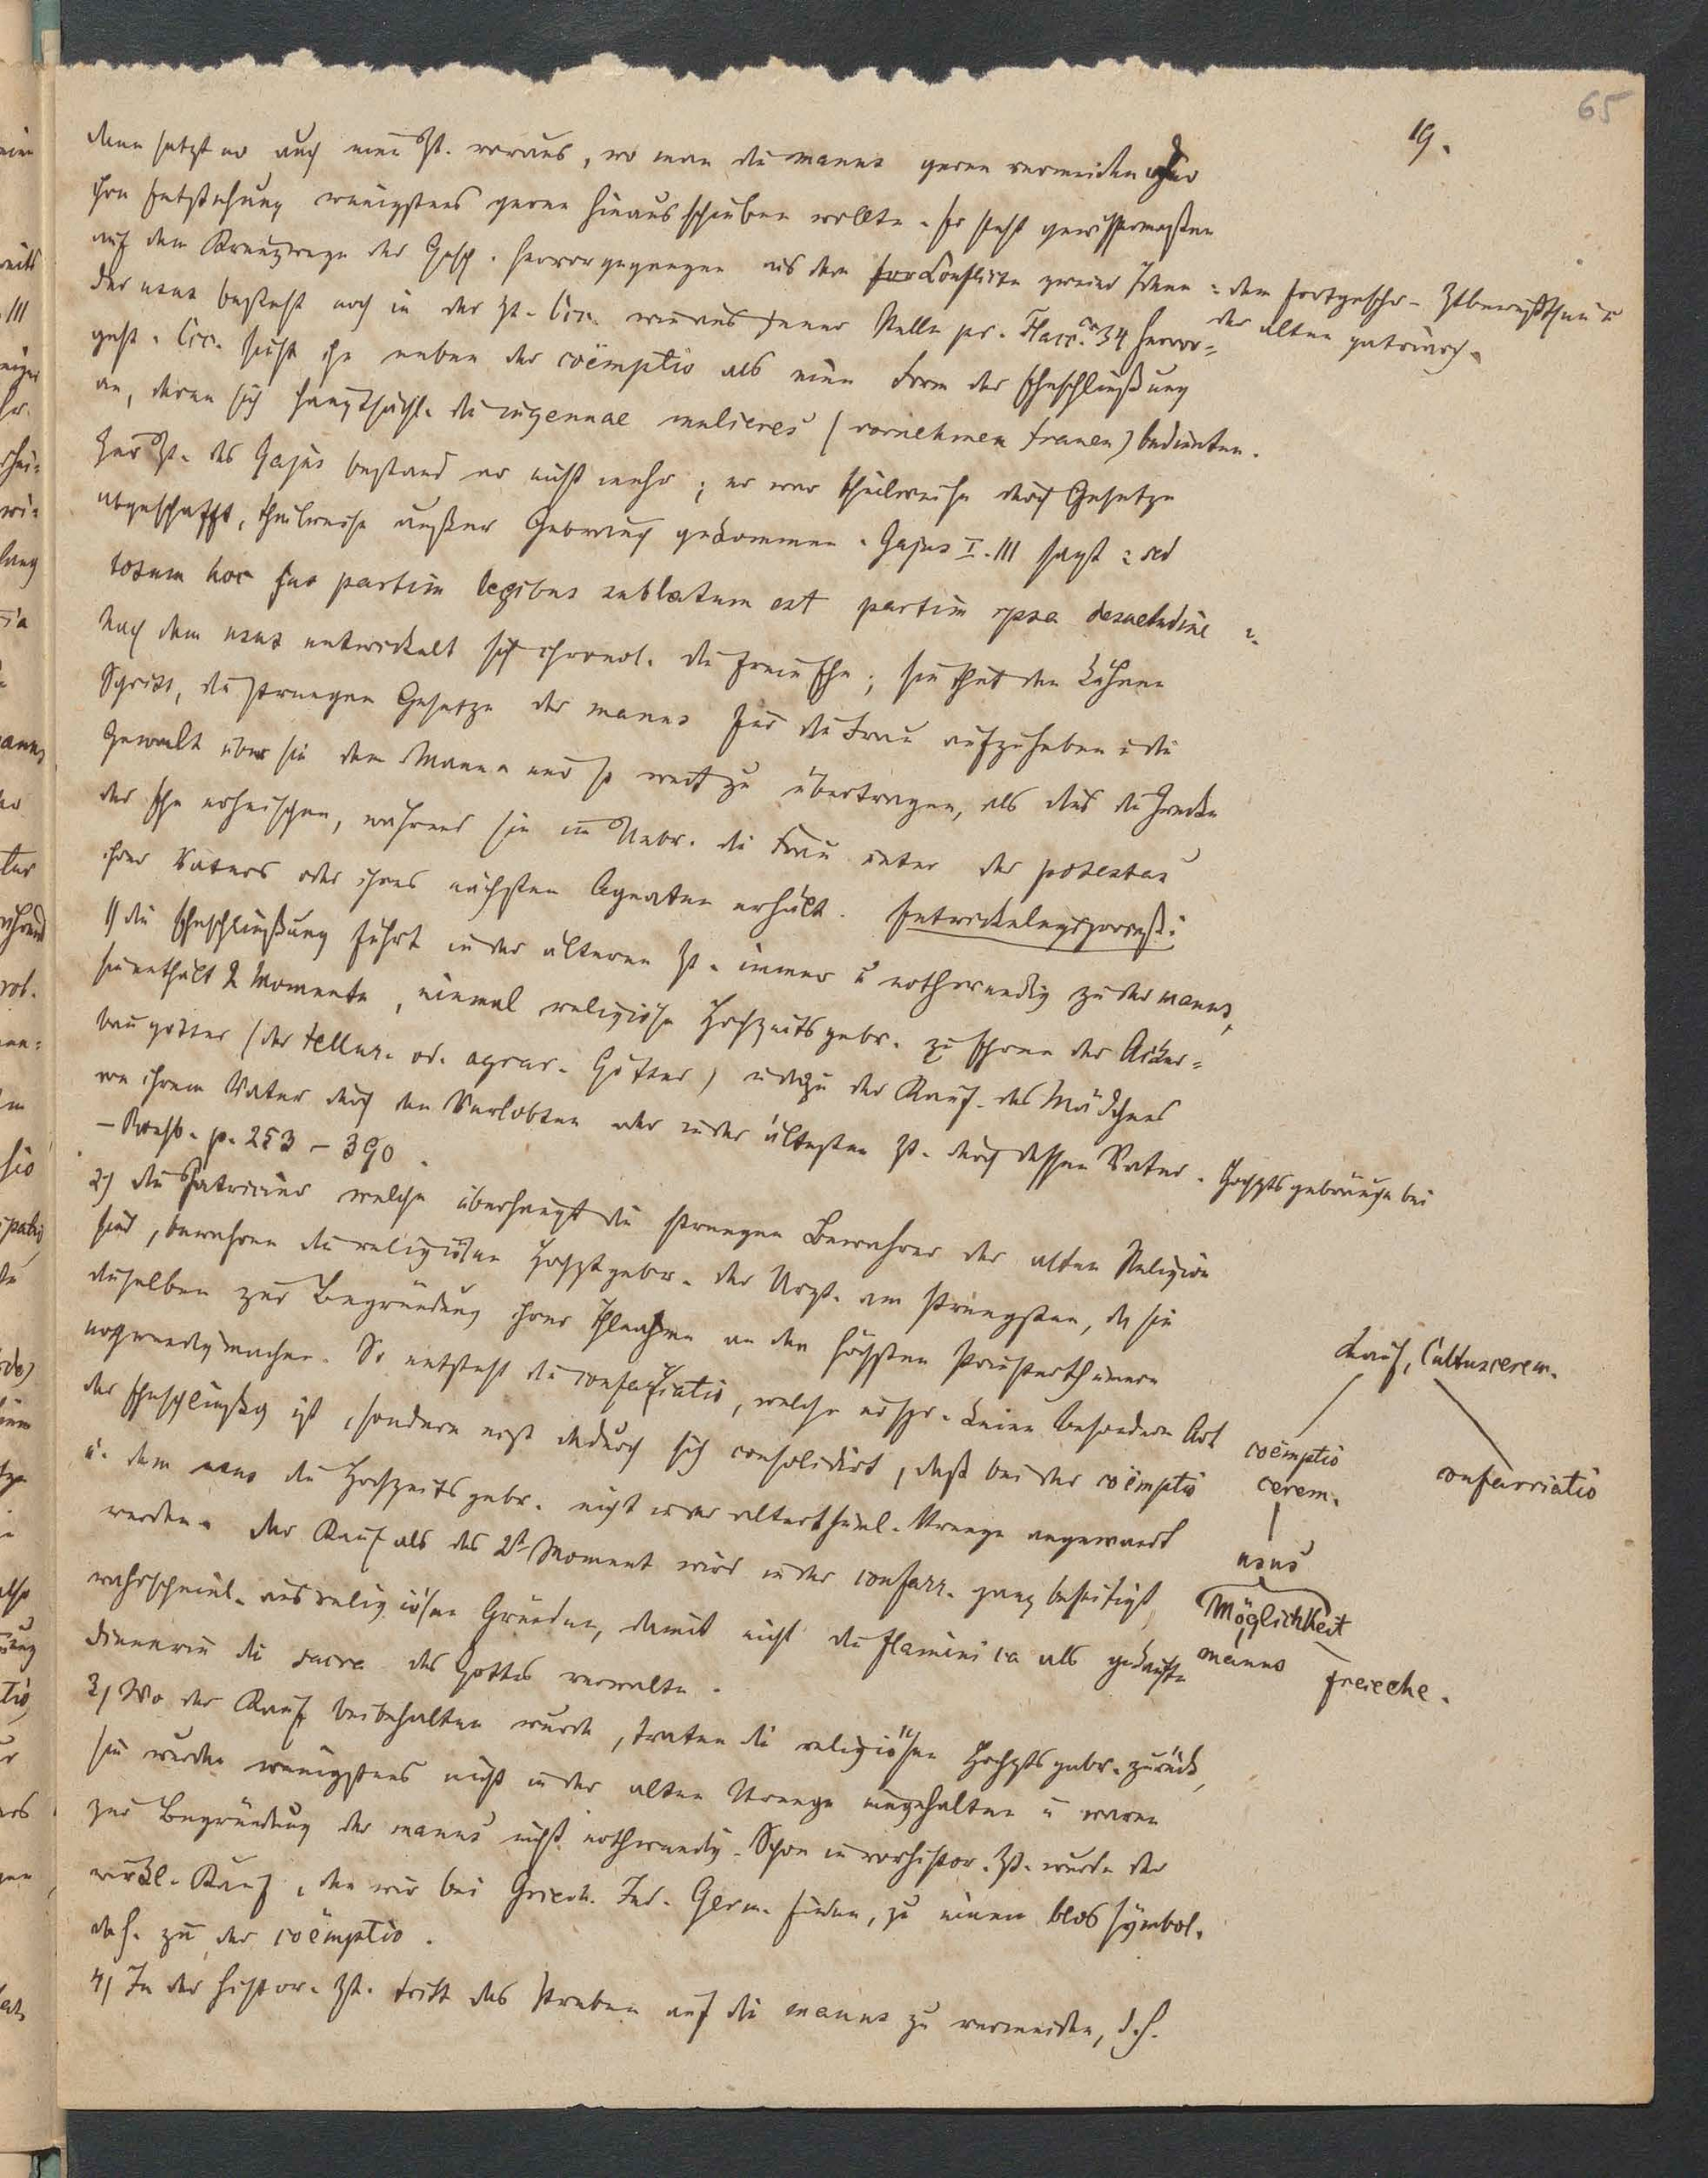 65
19.
denn setzt er auch eine Zt. voraus, wo man die manus gerne vermeiden oder
ihre Entstehung wenigstens gerne hinausschieben wollte. Er steht gewissermaßen
auf dem Kreuzwege der Gesch. hervorgegangen aus dem Conflicte zweier Ideen: dem fortgeschr. Ztbewußtsein u
der alten patriarch.
Der usus besteht noch in der Zt. Cic. wie aus jener Stelle pr. Flacc. c. 34 hervor=
geht. Cic. sieht ihn neben der coëmptio als eine Form der Eheschließung
an, deren sich hauptsächl. die ingenuae mulieres (vornehmen Frauen) bedienten.
Zur Zt. des Gajus bestand er nicht mehr; er war theilweise durch Gesetze
abgeschafft, theilweise außer Gebrauch gekommen. Gajus I. 111 sagt: sed
totum hoc jus partim legibus sublatum est partim ipsa desuetudine
Nach dem usus entwickelt sich chronol. die freie Ehe; sie that den kühnen
Schritt, die strengen Gesetze der manus für die Frau aufzuheben u die
Gewalt über sie dem Manne nur so weit zu übertragen, als dies die Zwecke
der Ehe erheischen, während sie im Uebr. die Frau unter der potestas
ihres Vaters oder ihres nächsten Agnaten erhält. Entwickelungsproceß:
1) die Eheschließung führt in der älteren Zt. immer u nothwendig zu der manus,
sie enthält 2 Momente, einmal religiöse Hochzeitsgebr. zu Ehren der Acker=
baugötter (der tellur. od. agrar. Götter) u dazu der Kauf des Mädchens
von ihrem Vater durch den Verlobten oder in der ältesten Zt. durch dessen Vater. Hochztsgebräuche bei
– Rossb. p. 253 – 390.
2) die Patricier welche überhaupt die strengen Bewahrer der alten Religion
sind, bewahren die religiösen Hochztgebr. der Urzt. am strengsten, da sie
dieselben zur Begründung ihrer Theilnahme an den höchsten Priesterthümern
nothwendig machen. So entsteht die confarriatio, welche urspr. keine besondere Art
der Eheschließg ist, sondern erst dadurch sich consolidirt, daß bei der coëmptio
u. dem usus die Hochzeitsgebr. nicht in der alterthüml. Strenge angewandt
werden. Der Kauf als das 2te Moment wird in der confarr. ganz beseitigt,
wahrscheinl. aus religiösen Gründen, damit nicht die flaminica als gekaufte
Dienerin die sacra des Gottes verwalte.
3) Wo der Kauf beibehalten wurde, traten die religiösen Hochztsgebr. zurück,
sie wurden wenigstens nicht in der alten Strenge eingehalten u waren
zur Begründung der manus nicht nothwendig. Schon in vorhistor. Zt. wurde der
wirkl. Kauf, den wir bei Griech. Ind. Germ. finden, zu einem blos symbol.
d.h. zu der coëmptio.
4) In der histor. Zt. tritt das Streben auf die manus zu vermeiden, d.h.
Kauf, Cultuscerem.
coëmptio
cerem.
confarriatio
usus
Möglichkeit
manus
freie Ehe.